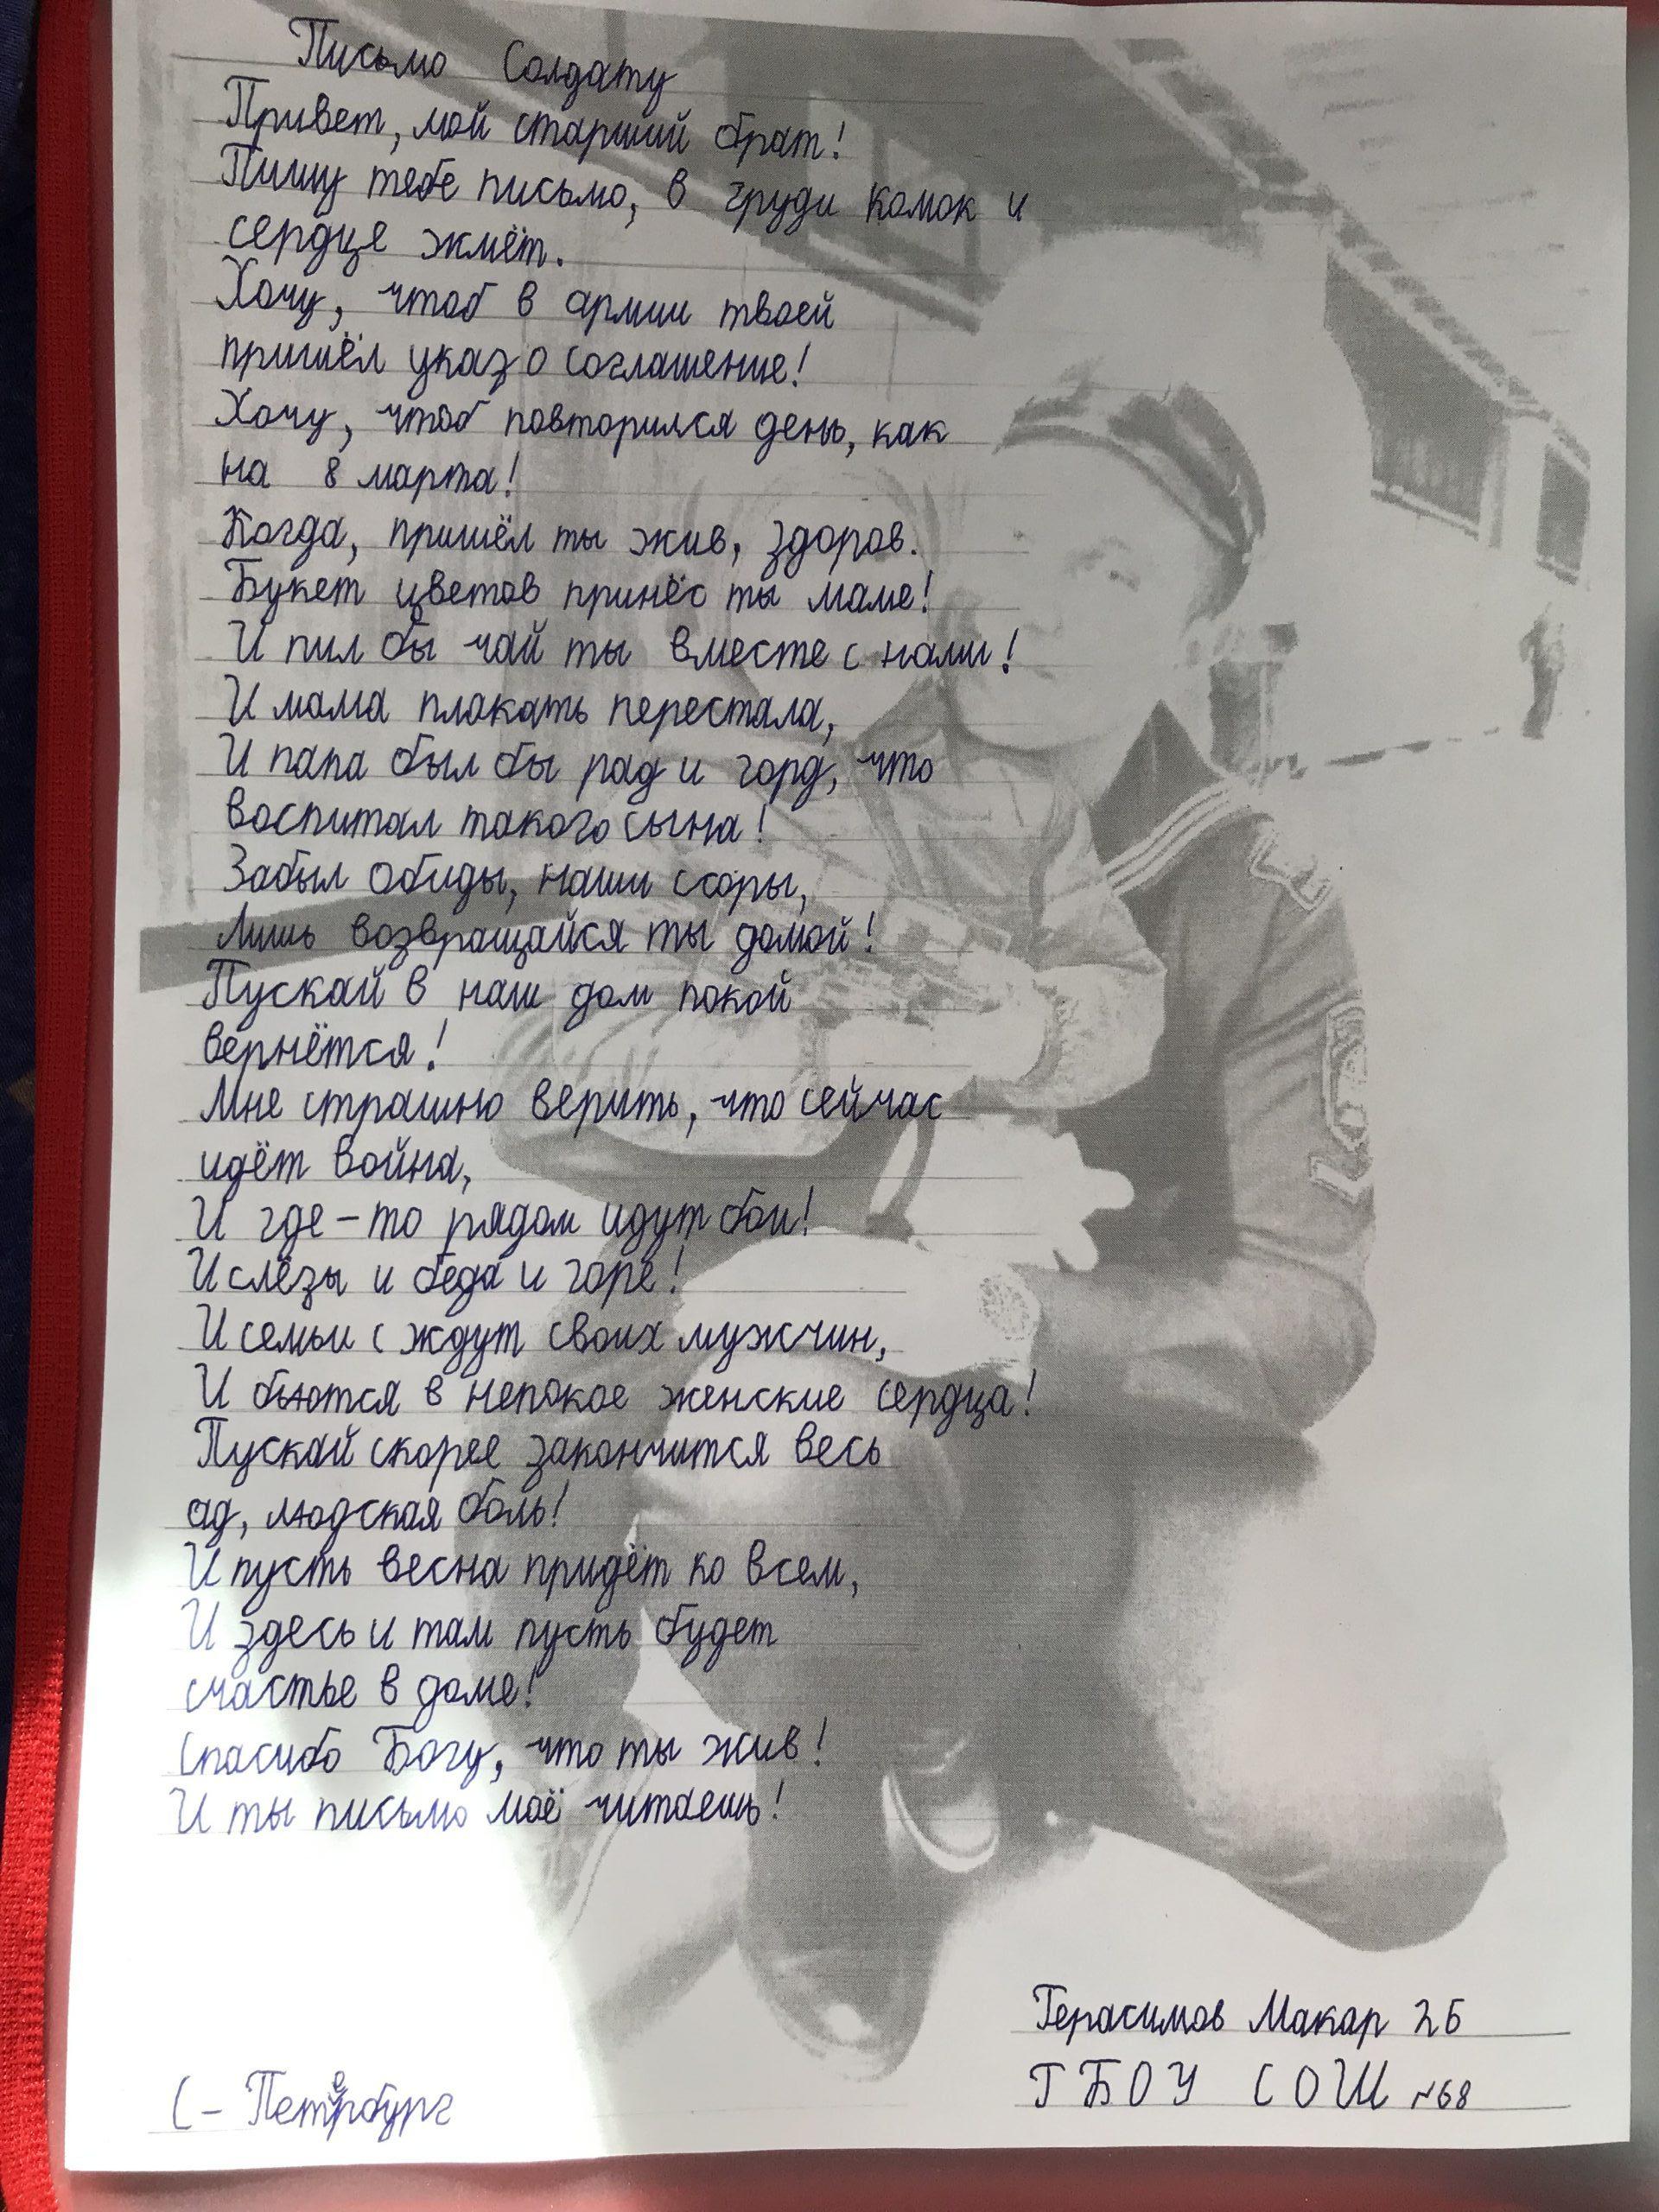 Письмо Солдату
Привет, мой старший брат!
Пишу тебе письмо, в груди комок и
сердце жмёт.
Хочу, чтоб в армии твоей
пришёл указ о соглашение!
Хочу, чтоб повторился день, как
на 8 марта!
Когда, пришёл ты жив, здоров.
Букет цветов принёс ты маме!
И пил бы чай ты вместе с нами!
И мама плакать перестала,
И папа был бы рад и горд, что
воспитал такого сына!
Забыл обиды, наши ссоры,
Лишь возвращайся ты домой!
Пускай в наш дом покой
вернётся!
Мне страшно верить, что сейчас
идёт война,
И где-то рядом идут бои!
И слёзы и беда и горе!
И семьи с ждут своих мужчин,
И бьются в непокое женские сердца!
Пускай скорее закончится весь
ад, людская боль!
И пусть весна придёт ко всем,
И здесь и там пусть будет
счастье в доме!
Спасибо Богу, что ты жив!
И ты письмо моё читаешь!
Герасимов Макар 2Б
ГБОУ СОШ №68
С-Петербург